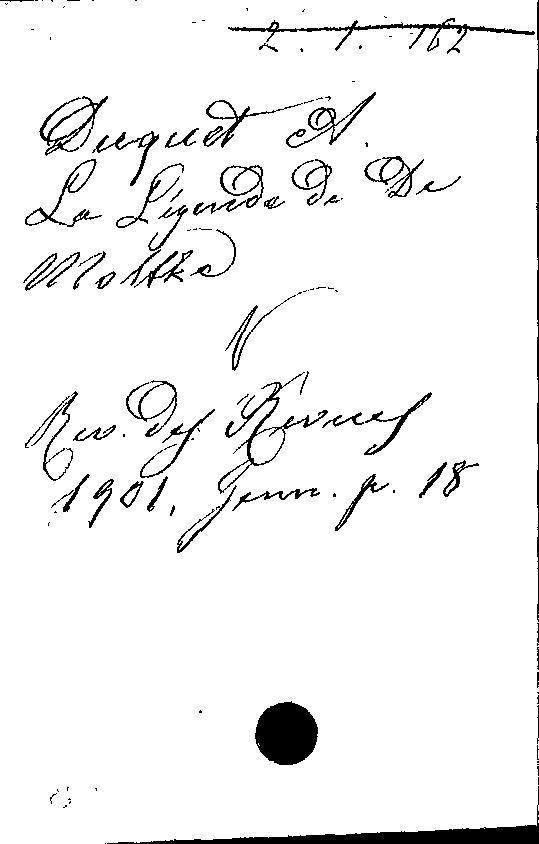 2. 1. 162
Duquet A.
La Légende de De
Moltke
V
Rev. des Revues
1901, Janv. p. 18